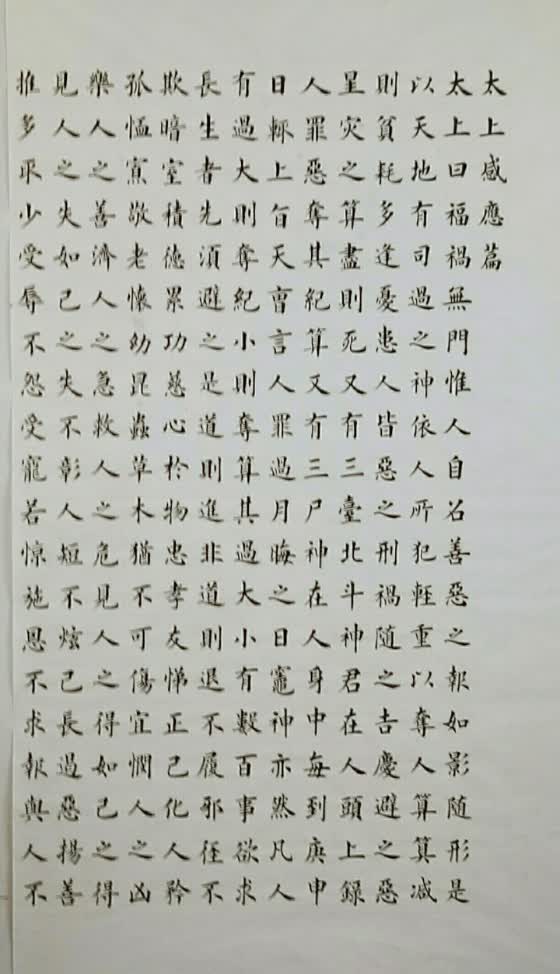 太上感應篇
太上曰福禍無門惟人自召善惡之報如影随形是
以天地有司過之神依人所犯輕重以奪人算算减
則貧耗多逢憂患人皆惡之刑禍随之吉慶避之惡
星灾之算盡則死又有三臺北斗神君在人頭上録
人罪惡奪其紀算又有三尸神在人身中每到庚申
日輒上旨天曹言人罪過月晦之日竈神亦然凡人
有過大則奪紀小則奪算其過大小有數百事欲求
長生者先須避之是道則進非道則退不履邪徑不
欺暗室積德累功慈心於物忠孝友悌正己化人矜
孤恤寡敬老懷幼昆蟲草木猶不可傷宜憫人之凶
樂人之善濟人之急救人之危見人之得如己之得
見人之失如己之失不彰人短不炫己長遏惡揚善
推多取少受辱不怨受寵若惊施恩不求報與人不